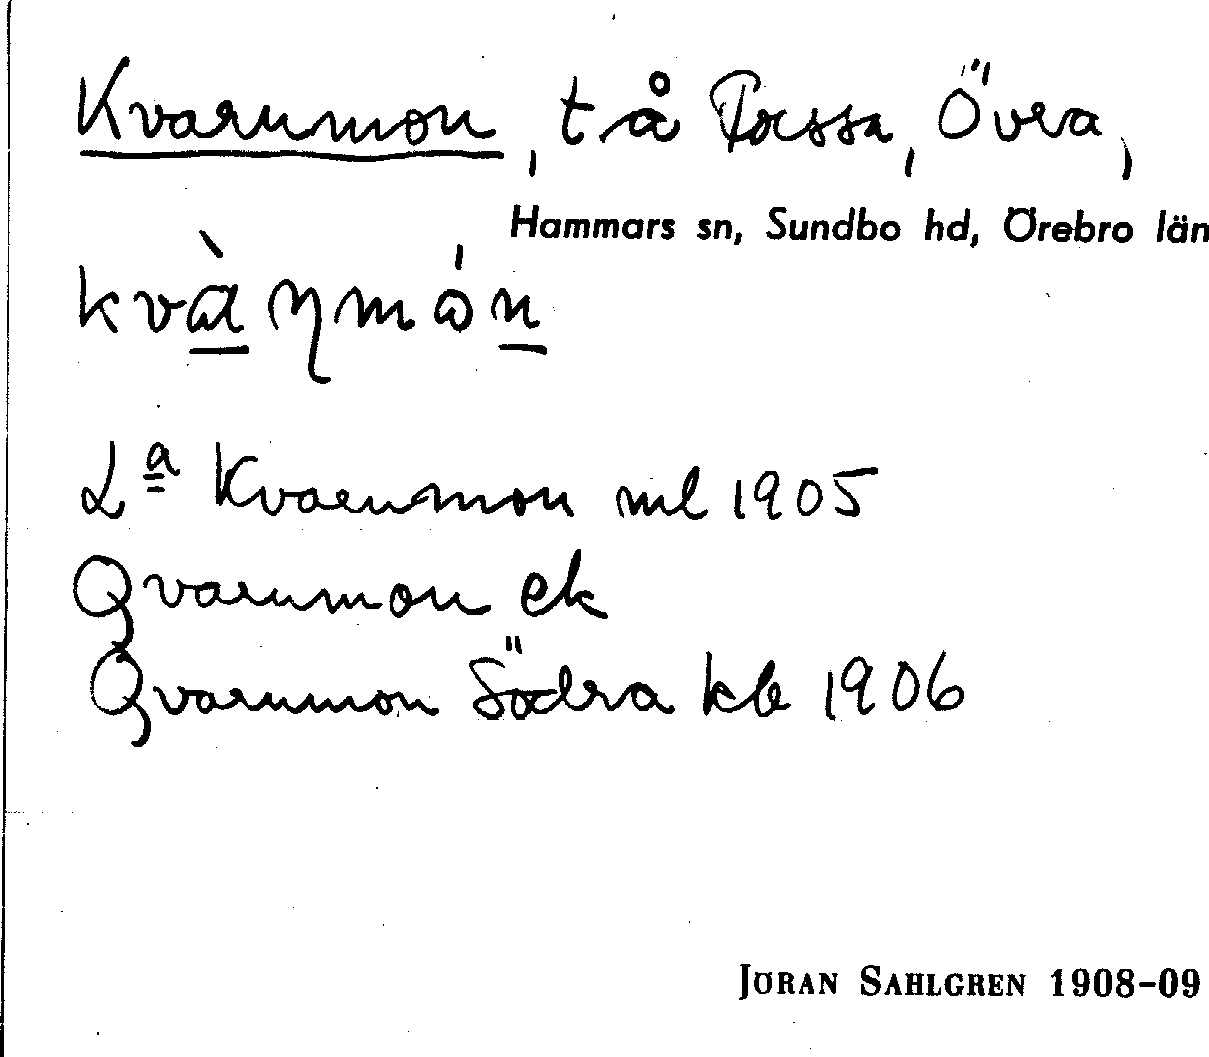 Kvarnmon, t å Forssa, Övra,
Hammars sn, Sundbo hd, Örebro län
kvàɳmón
La Kvarnmon ml 1905
Qvarnmon ek
Qvarnmon Södra kb 1906
JÖRAN SAHLGREN 1908-09